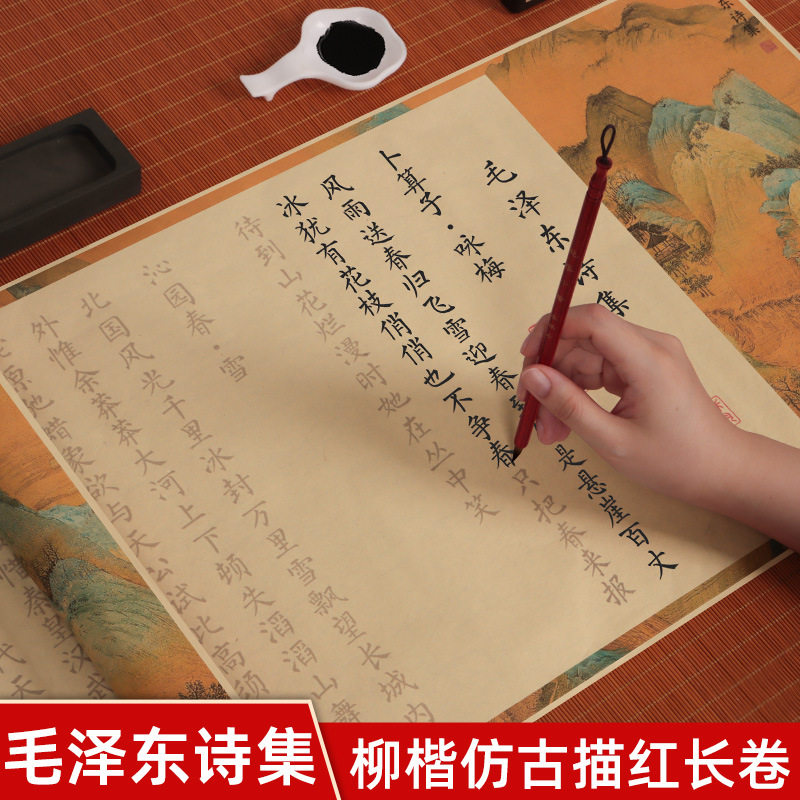 东诗集
毛泽东诗集
卜算子·咏梅
风雨送春归飞雪迎春 是悬崖百丈
冰犹有花枝俏俏也不争春只把春来报
待到山花烂漫时她在丛中笑
沁园春·雪
北国风光千里冰封万里雪飘望长城内
外惟余莽莽大河上下顿失滔滔山舞
原驰蜡象欲与天公试比高须
惜秦皇汉武
代天
毛泽东诗集
柳楷仿古描红长卷